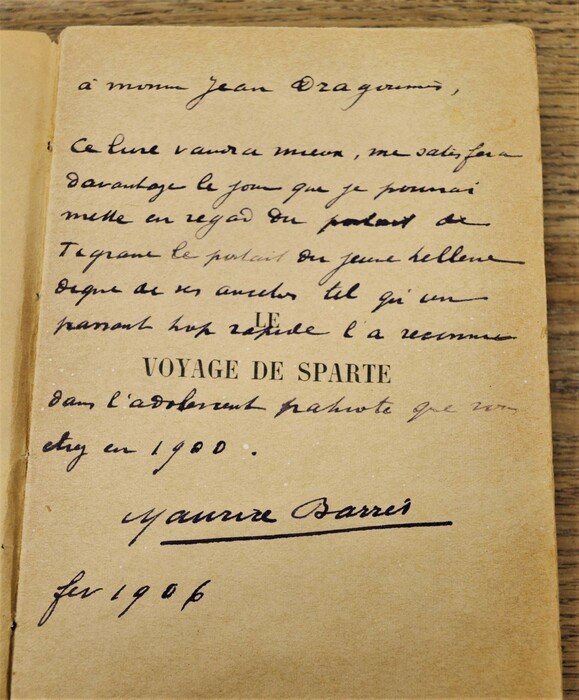 à monsieur Jean Dragoumis,
Ce livre vaudra mieux, me satisfera
davantage le jour que je pourrai
mettre en regard du portrait de
Tigrane le portait du jeune hellene
digne de ses ancetres tel qu'un
passant trop rapide l'a reconnu
LE
VOYAGE DE SPARTE
dans l'adolescent patriote que vous
etiez en 1900.
Maurice Barrès
fev 1906